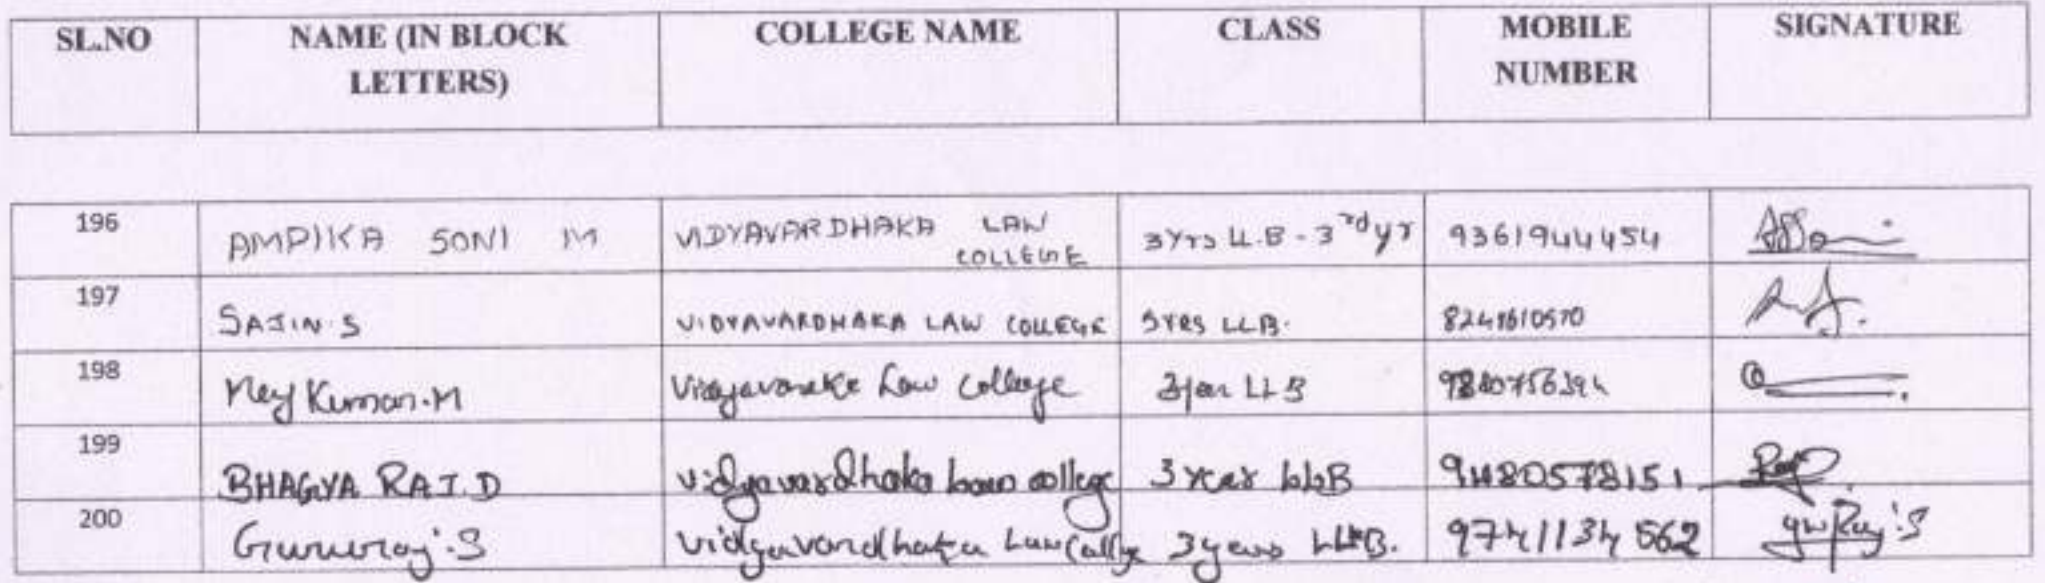 SL.NO NAME (IN BLOCK LETTERS) COLLEGE NAME CLASS MOBILE NUMBER SIGNATURE
196 AMPIKA SONI M VIDYAVARDHAKA LAW COLLEGE 3Yrs LL.B - 3rd yr 9361944454
197 SAJIN.S VIDYAVARDHAKA LAW COLLEGE 5YRS LLB.
198 Kumar.M Law College 3year LLB
199 BHAGYA RAJ.D vidyavardhaka law college 3 year LLB 9480578151
200 Gururaj.S vidyavardhaka Law College 3years LLB. 9741134562